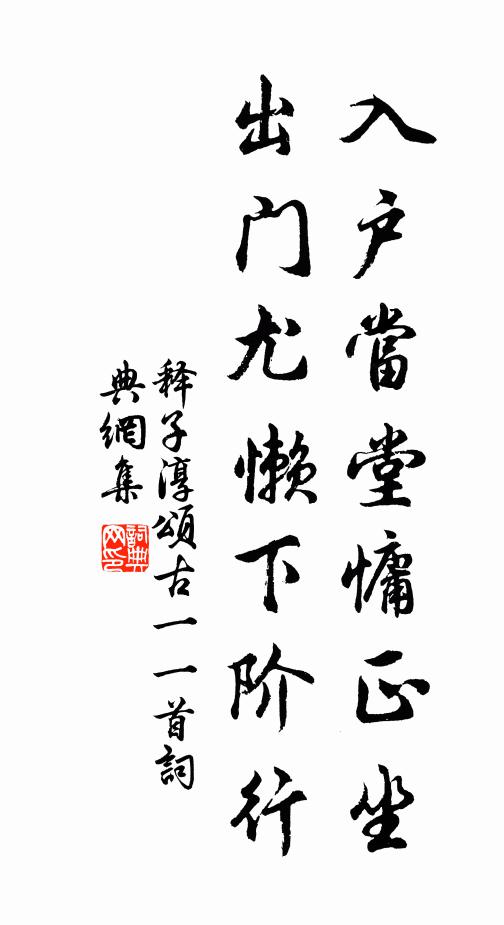 入户當堂慵正坐
出门尤懒下阶行
释子淳頌古一一首詞
典網集
詞典网印